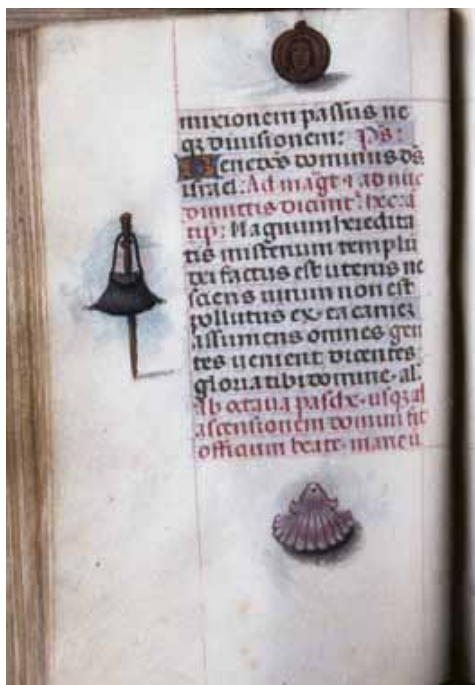 mixionem passus ne
qz divisionem: Ps:
Benedcs dominus ds
israel: Ad magt ⁊ ad nuc
dimittis dicint hec a
tip: Magnum heredita
tis misterium templu
dei factus est uterus ne
sciens virum non est
pollutus ex ea carnez
assumens omnes gen
tes venient dicentes
gloria tibi domine. al.
Ab octava pasche. usqz ad
ascensionem domini fit
officium beate marie ū